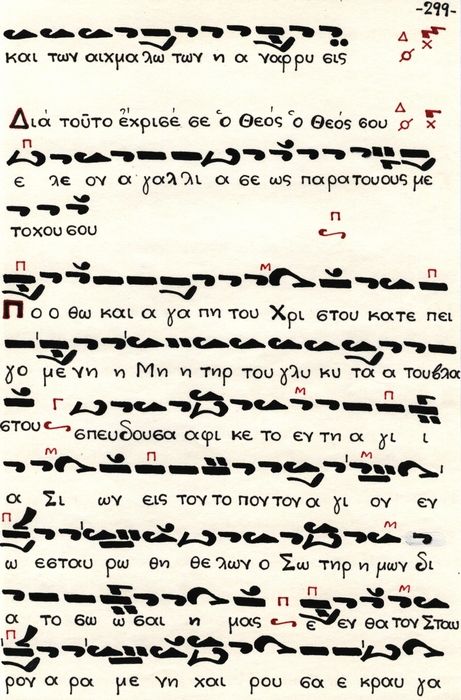 -299-
και των αιχμα λω των η α ναρρυ σις
Διά τοῦτο ἔχρισέ σε ὁ Θεός ὁ Θεός σου
ε λε ον α γαλλι α σε ως παρατουους με
τοχου σου
Π ο ο θω και α γα πη του Χρι στου κατε πει
γο με νη η Μη η τηρ του γλυ κυ τα α του βλα
στου σπευδουσα αφι κε το εν τη α γι ι
α Σι ων εις τον το πον τον α γι ον εν
ω εσταυ ρω θη θε λων ο Σω τηρ η μων δι
α το σω ω σαι η μας ε εν θα τον Σταυ
ρον α ρα με νη χαι ρου σα ε κραυ γα